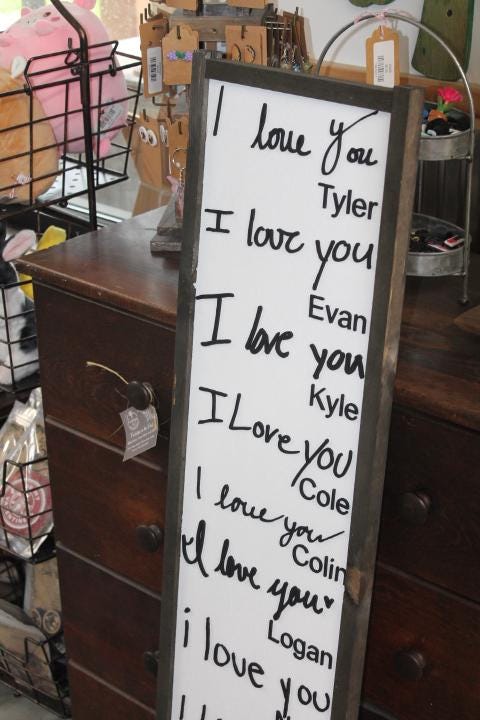 I love you
Tyler
I love you
Evan
I love you
Kyle
I Love you
Cole
I love you
Colin
I love you
Logan
i love you